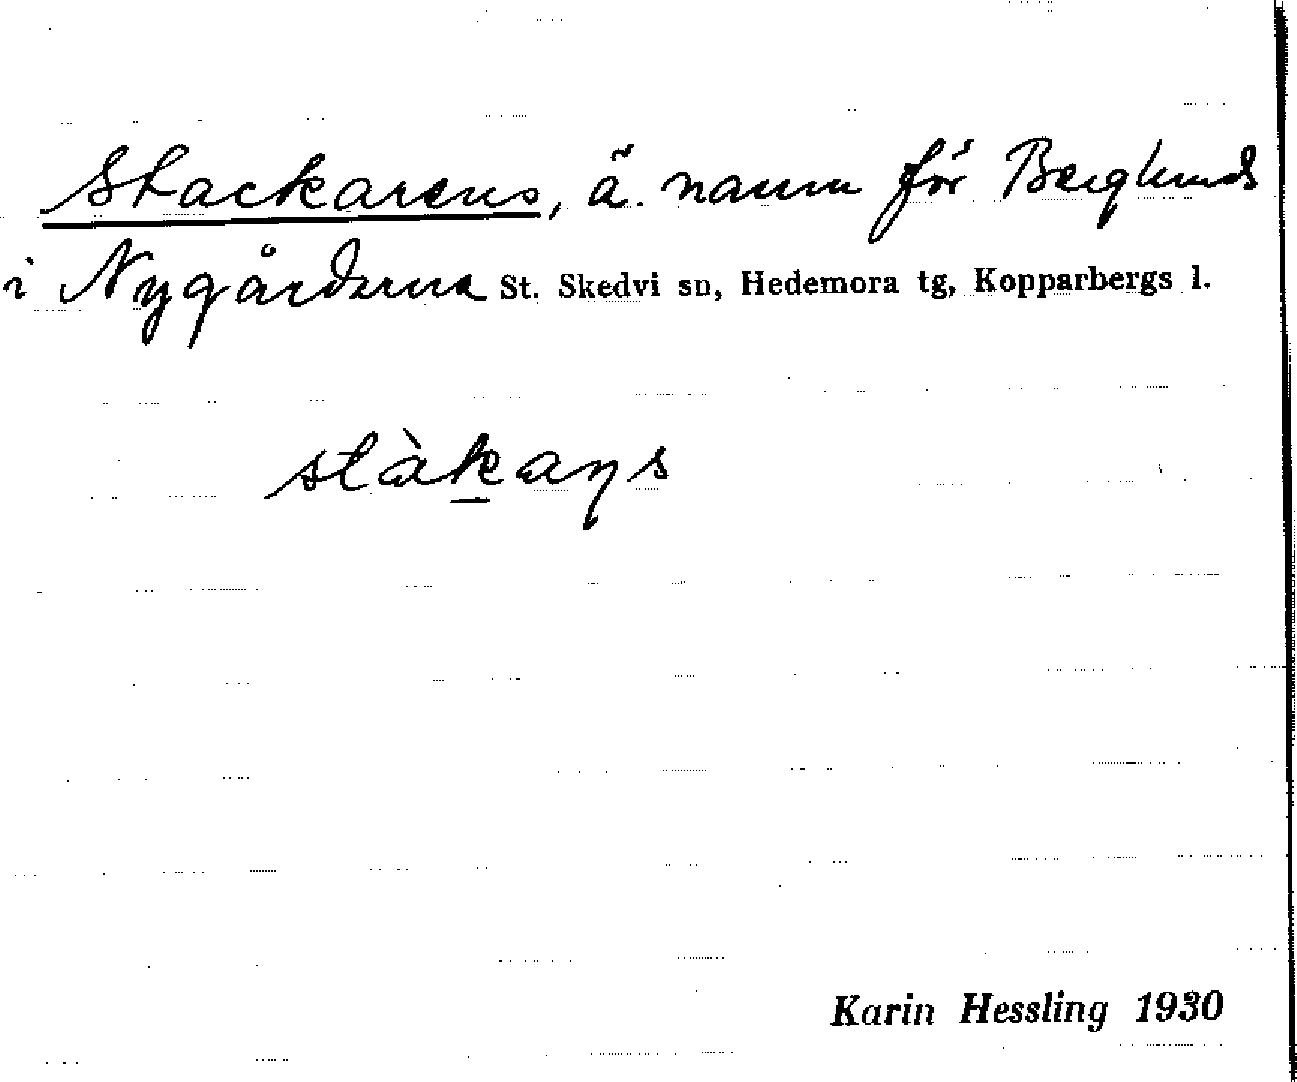 Stackarens, ä. namn för Berglunds
i Nygårderna St. Skedvi sn, Hedemora tg, Kopparbergs l.
stàkaɳs
Karin Hessling 1930